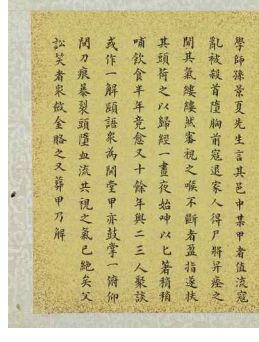 學師孫景夏先生言其邑中某甲者值流寇
亂被殺首墮胸前寇退家人得尸將舁瘞之
聞其氣縷縷然審視之喉不斷者盈指遂扶
其頭荷之以歸經一晝夜始呻以匕箸稍稍
哺飲食半年竟愈又十餘年與二三人聚談
或作一解頤語衆為鬨堂甲亦鼓掌一俯仰
間刀痕暴裂頭墮血流共視之氣已絕矣父
訟笑者衆斂金賂之又葬甲乃解